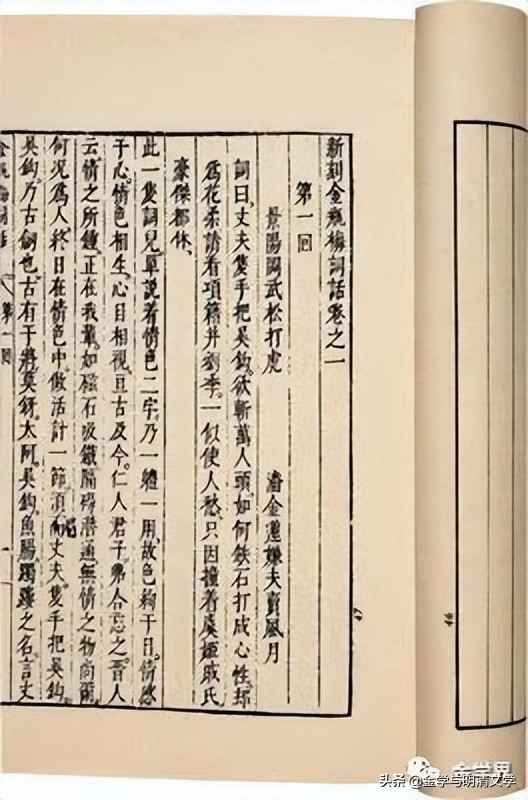 新刻金瓶梅詞話卷之一
第一回
景陽岡武松打虎　潘金蓮嫌夫賣風月
詞曰、丈夫隻手把吳鈎、欲斬萬人頭、如何鉄石打成心性、却
爲花柔、請看項籍并劉季、一似使人愁、只因撞着虞姬戚氏
豪傑都休、
此一隻詞兒、單說着情色二字、乃一體一用、故色絢于目、情感
于心、情色相生、心目相視、亘古及今、仁人君子、弗合忘之、晋人
云、情之所鍾、正在我輩、如磁石吸鐵、隔碍潛通、無情之物尚爾
何况爲人、終日在情色中、做活計一節、須而丈夫隻手把吳鈎、
吳鈎、乃古劍也、古有干將、莫鋣、太阿、吳鈎、魚腸、躅鏤之名、言丈
第一回
47
46
金学界
头条 @金学与明清文学